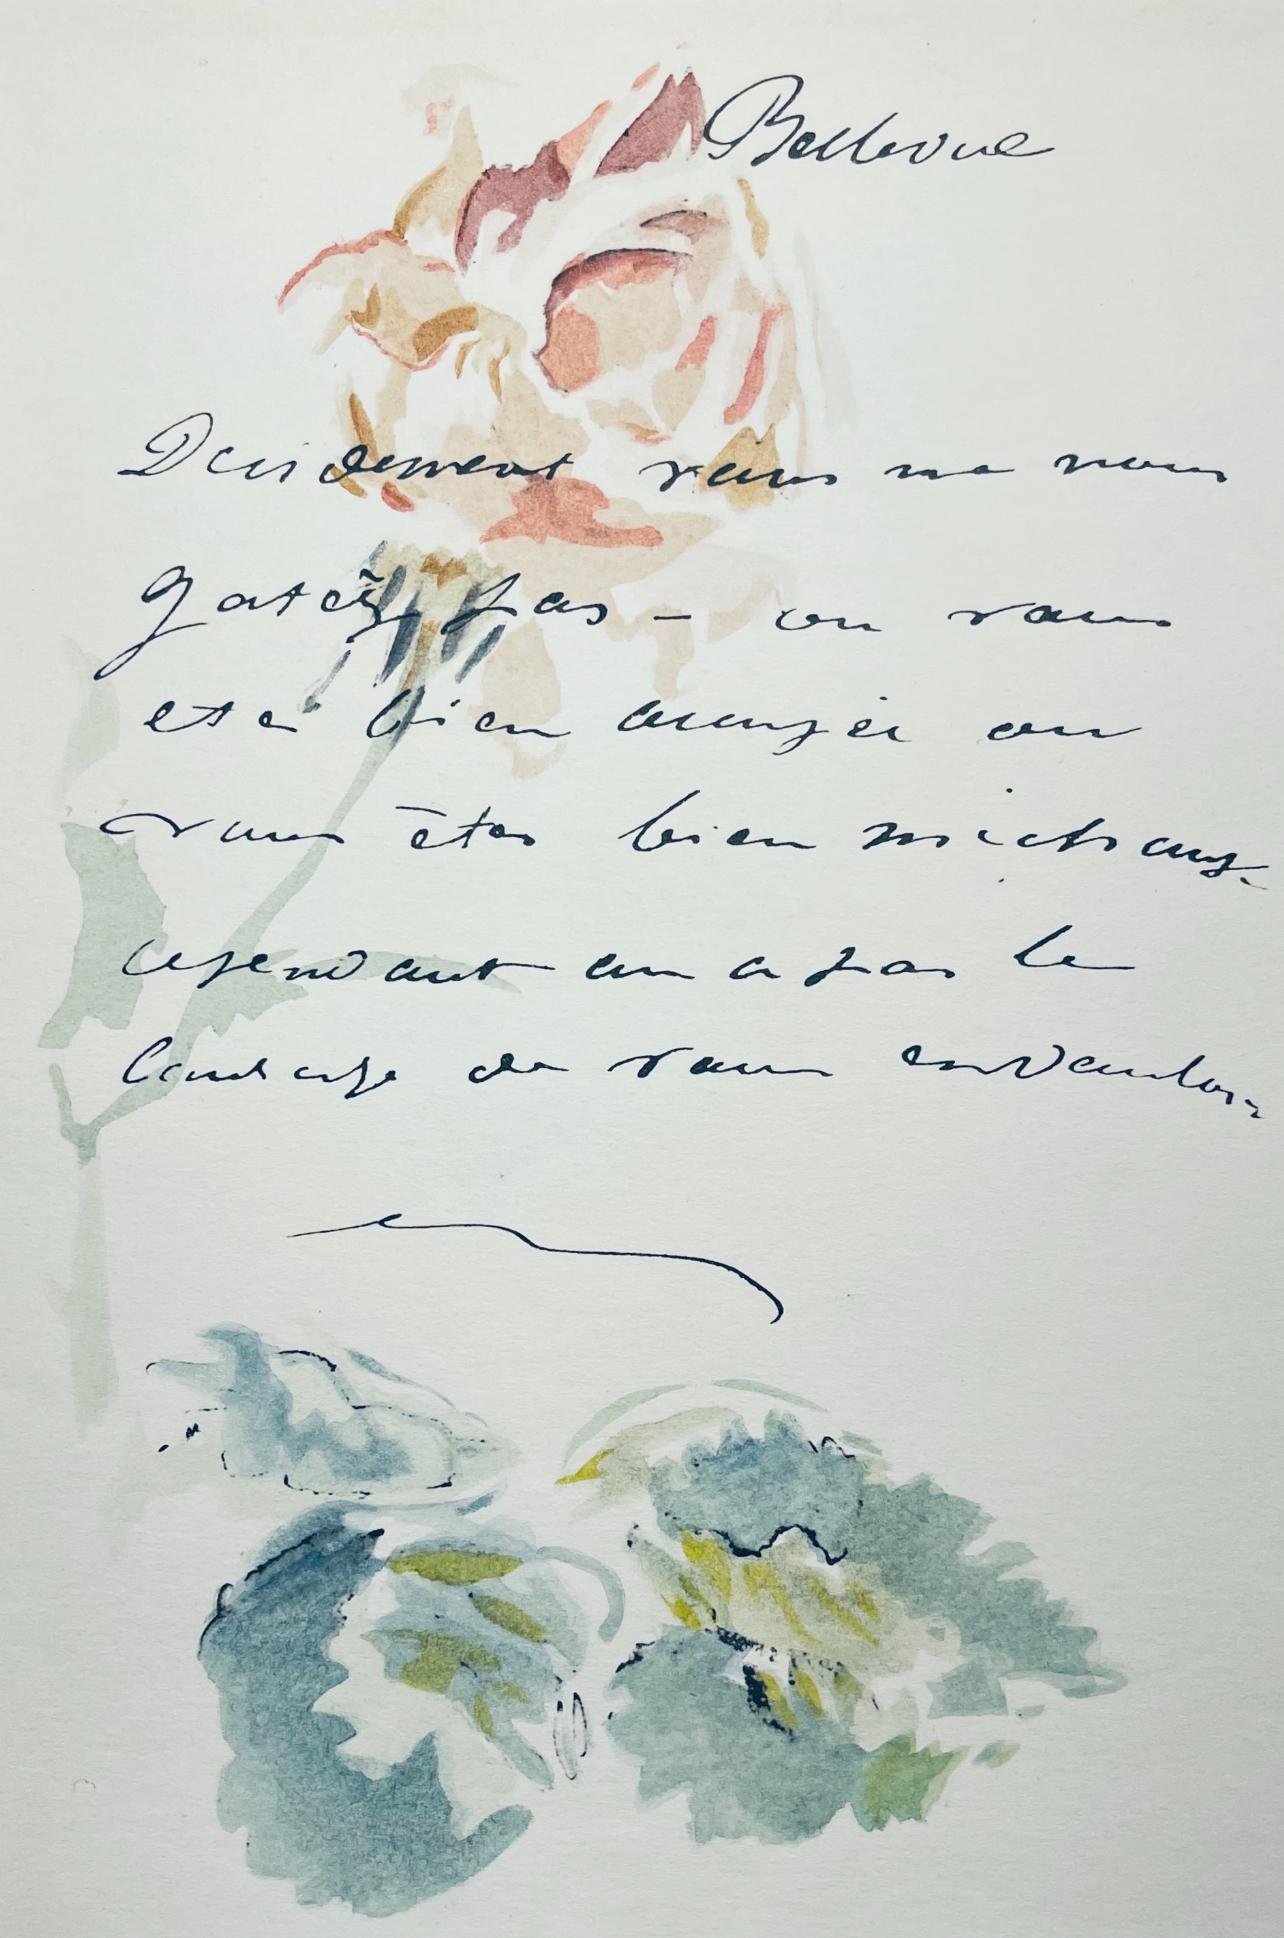 Bellevue
Decidement vous ne nous
gatez pas - ou vous
etes bien occupée ou
vous êtes bien méchante
cependant on a pas le
courage de vous en vouloir